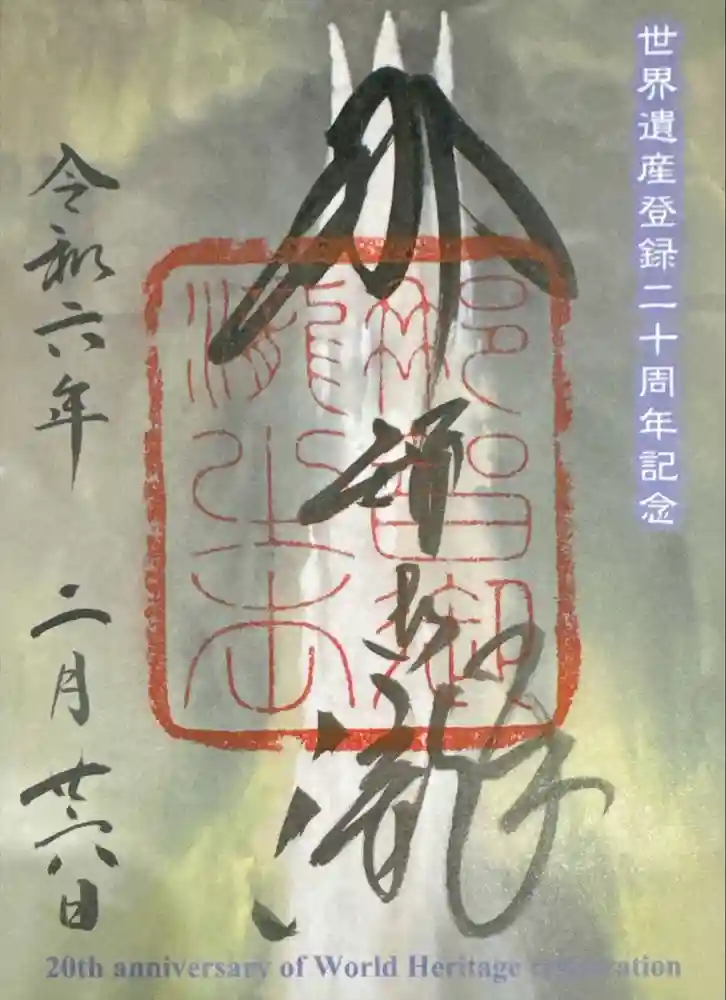 世界遺産登録二十周年記念
那智御瀧
令和六年 二月廿六日
20th anniversary of World Heritage registration